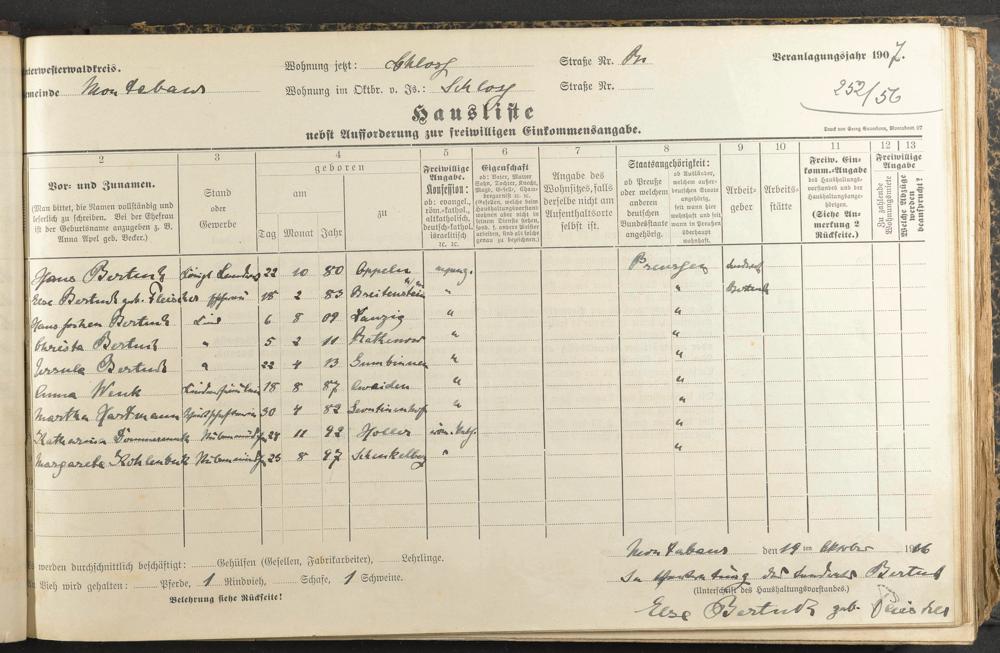 nterwesterwaldkreis.
Wohnung jetzt: Schloss
Straße Nr.
Veranlagungsjahr 1907.
emeinde Montabaur
Wohnung im Oktbr. v. Js.: Schloss
Straße Nr.
252/56
Hausliste
nebst Aufforderung zur freiwilligen Einkommensangabe.
Druck von Georg Sauerborn, Montabaur
2 3 4 5 6 7 8 9 10 11 12 13
Vor- und Zunamen.
(Man bittet, die Namen vollständig und leserlich zu schreiben. Bei der Ehefrau ist der Geburtsname anzugeben z. B. Anna Apel geb. Becker.)
Stand oder Gewerbe
geboren
am
Tag Monat Jahr
zu
Freiwillige Angabe.
Konfession:
ob: evangel., röm.-kathol., altkatholisch, deutsch-kathol. israelitisch ec. ec.
Eigenschaft
ob: Vater, Mutter Sohn, Tochter, Knecht, Magd, Geselle,
Angabe des Wohnsitzes, falls derselbe nicht am Aufenthaltsorte selbst ist.
Staatsangehörigkeit:
ob Preuße oder welchem anderen deutschen Bundesstaate angehörig.
ob Ausländer, welchem außerdeutschen Staate angehörig, seit wann hier wohnhaft und seit wann in Preußen überhaupt wohnhaft.
Arbeitgeber
Arbeitsstätte
Freiw. Einkomm.-Angabe
des Haushaltungsvorstandes und der Haushaltungsangehörigen.
(Siehe Anmerkung 2 Rückseite.)
Freiwillige Angabe
Zu zahlende Wohnungsmiete
Welche Abzüge werden beansprucht?
Hans Bertuch 22 10 80 Oppeln evang. Preussen
Else Bertuch geb. Fleischer Ehefrau 18 2 83 Breitenstein " " Bertuch
Hans Jochen Bertuch Kind 6 8 09 Danzig " "
Christa Bertuch " 5 2 11 Rathenow " "
Ursula Bertuch " 22 4 13 Gumbinnen " "
Anna Wenk Kinderfräulein 18 8 87 " "
Martha Hartmann 30 4 82 " "
Katharina 28 11 92 Holler röm. Kath. "
Margareta Kohlenbeck 25 8 97 Schenkelberg " "
werden durchschnittlich beschäftigt: Gehülfen (Gesellen, Fabrikarbeiter), Lehrlinge.
Vieh wird gehalten: Pferde, 1 Rindvieh, Schafe, 1 Schweine.
Belehrung siehe Rückseite!
Montabaur den 19 ten Oktober 1916
In Vertretung des Landrats Bertuch
(Unterschrift des Haushaltungsvorstandes.)
Else Bertuch geb. Fleischer